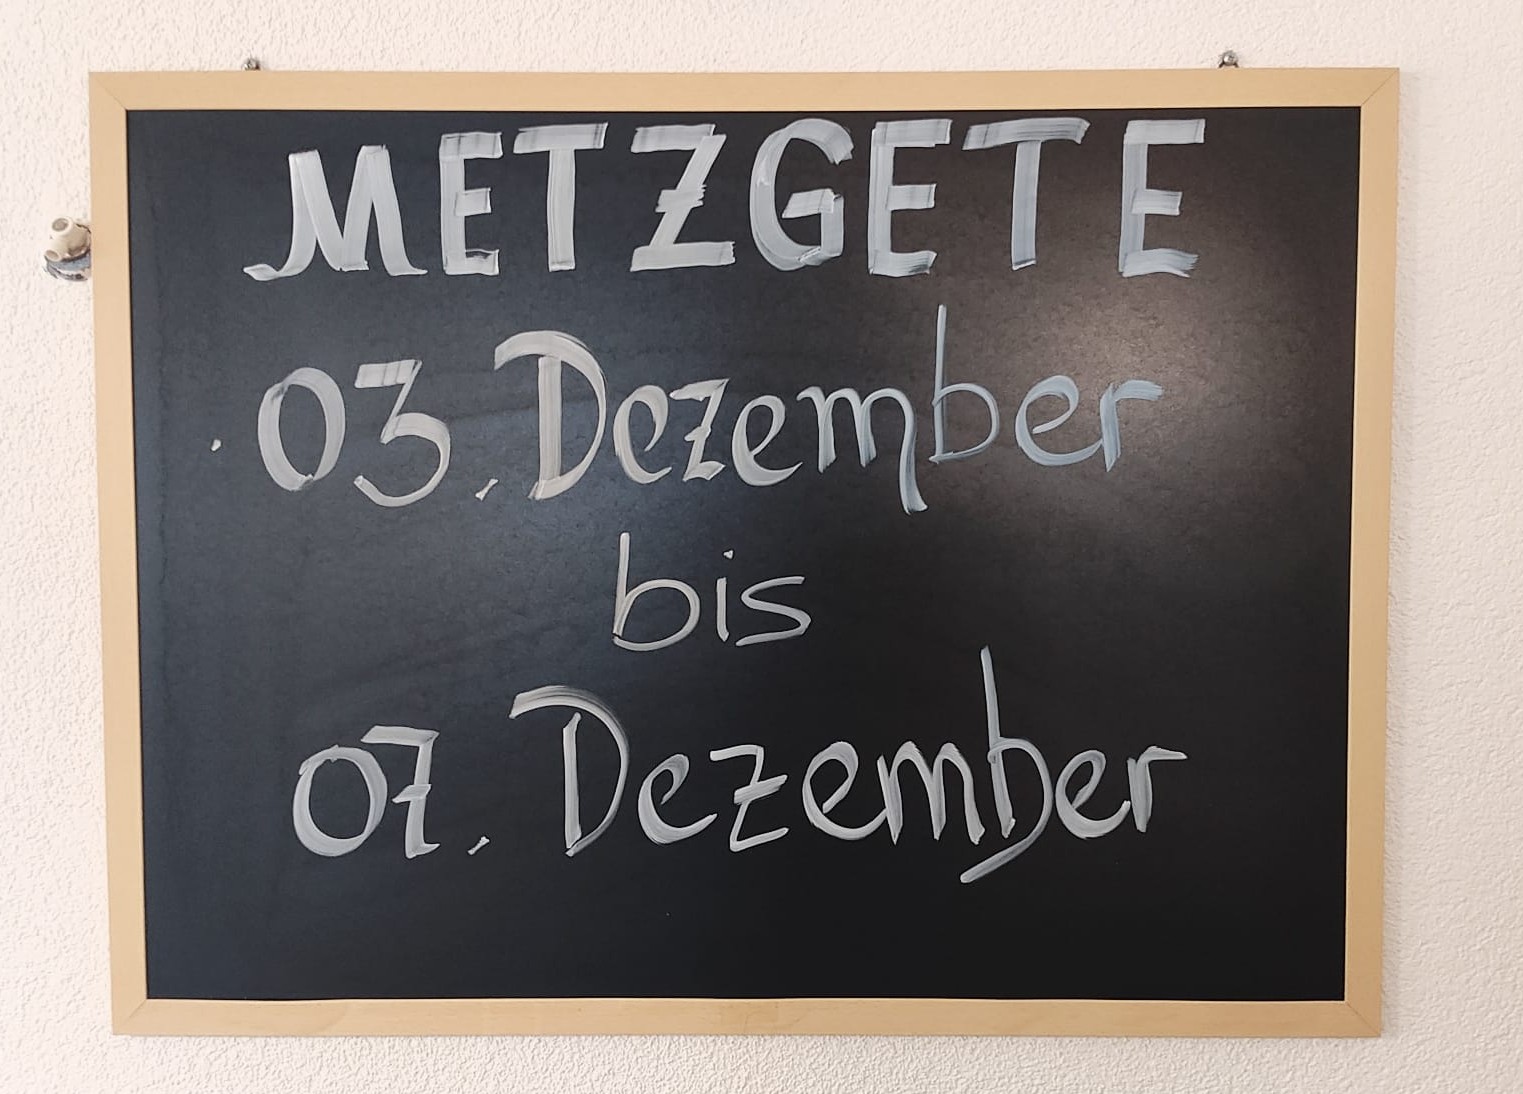 METZGETE
03. Dezember
bis
07. Dezember